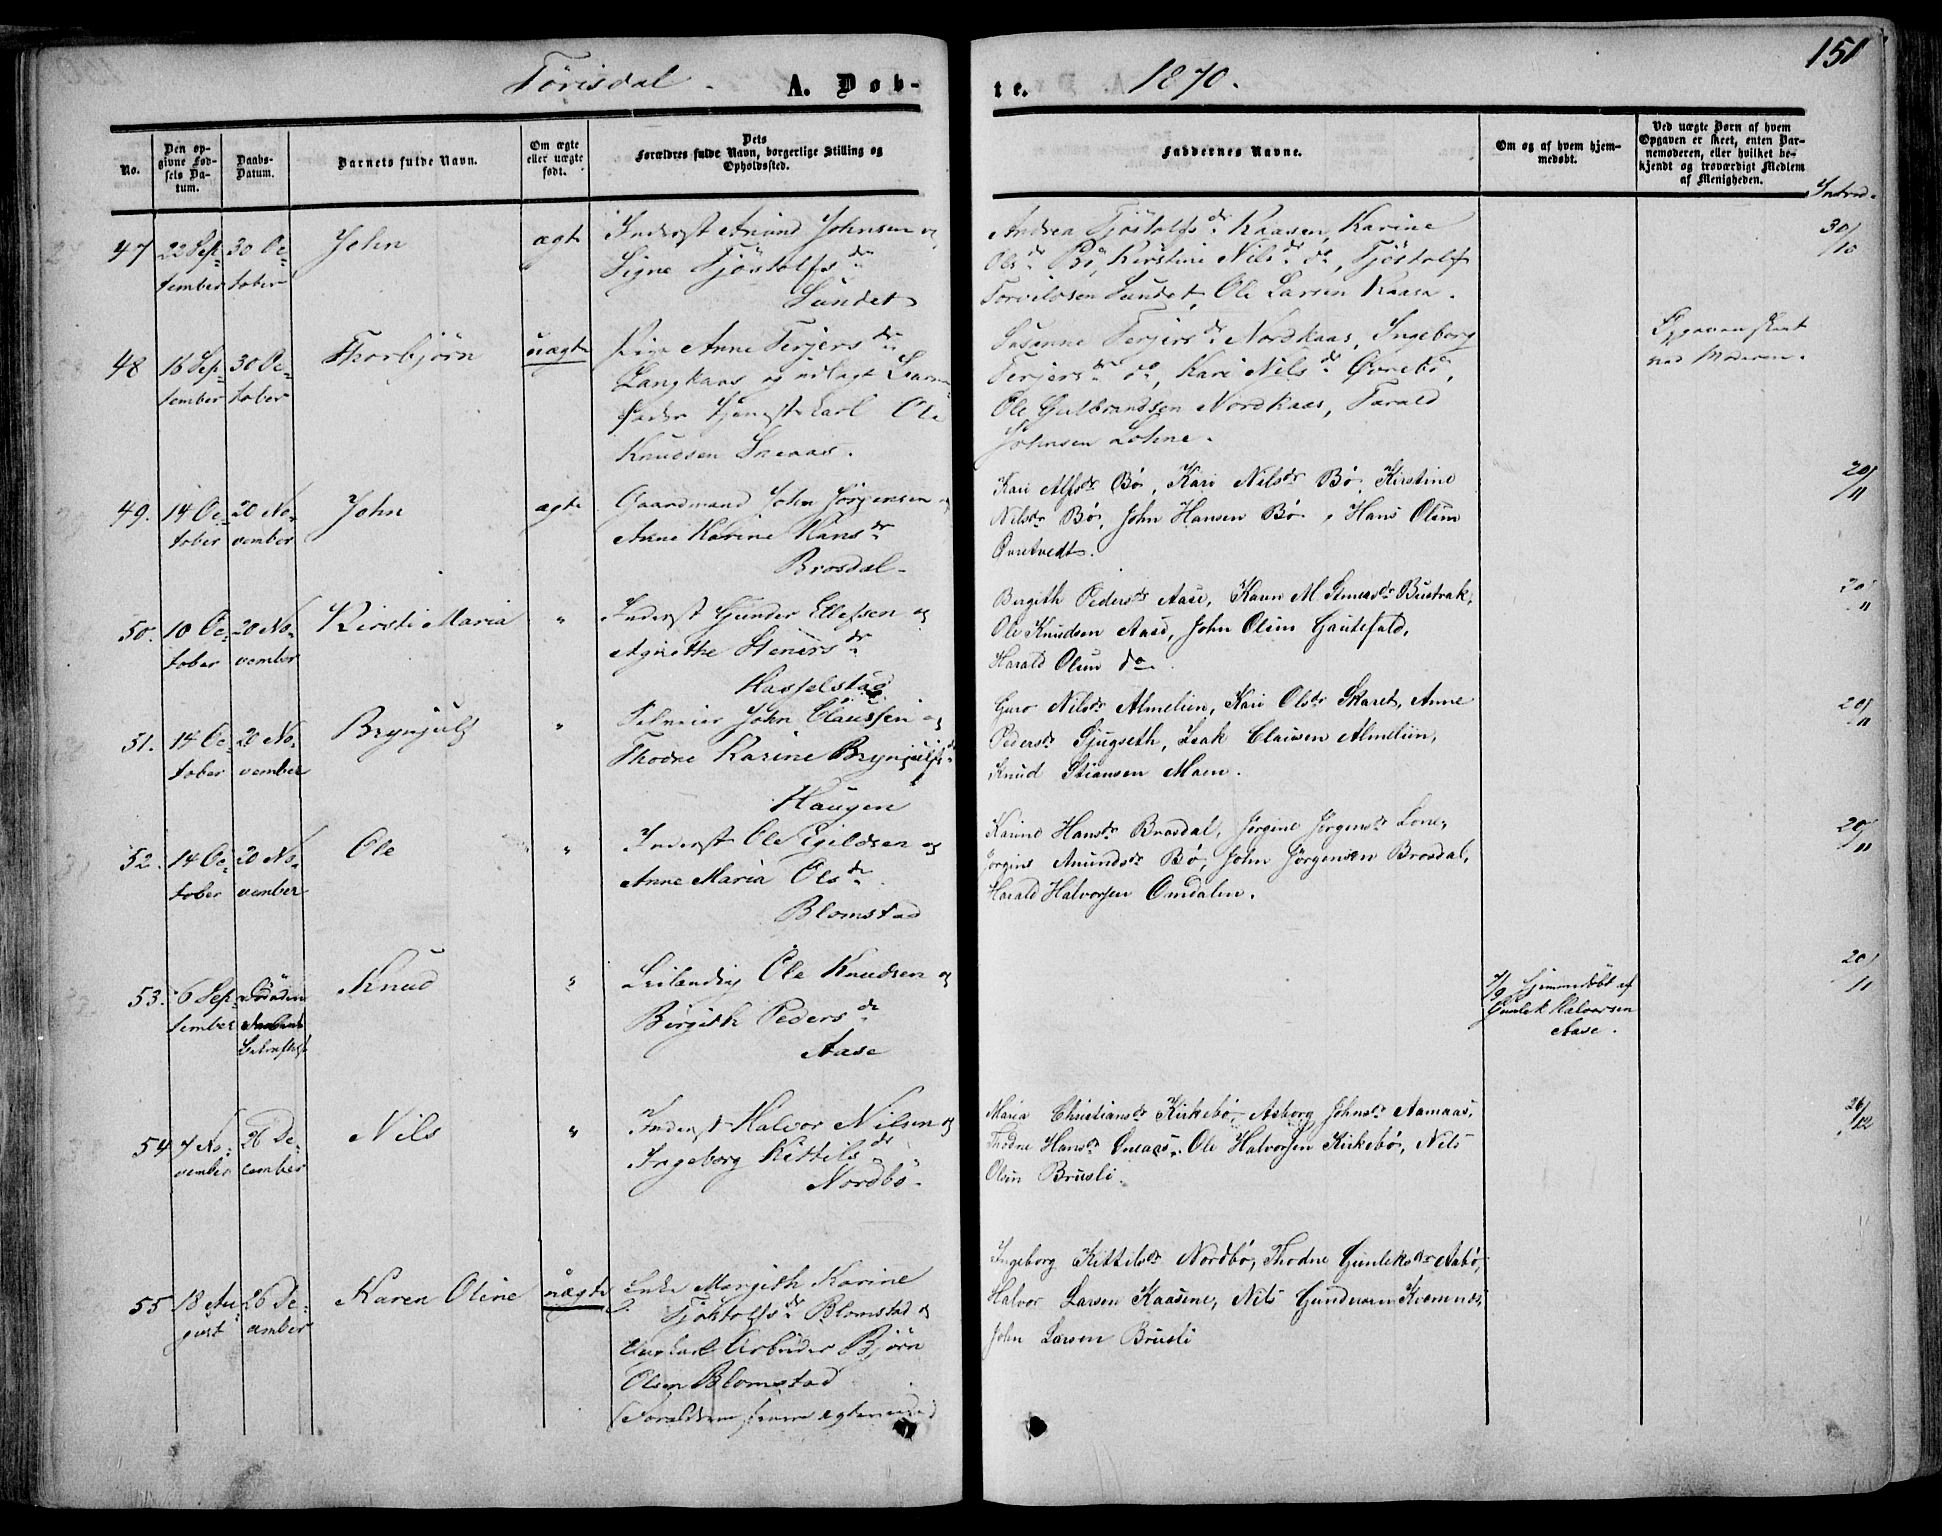 151
Törisdal. A. Døb-
te. 1870.
No.
Den op-
givne Fød-
sels Da-
tum.
Daabs-
Datum.
Barnets fulde Navn.
Om ægte
eller uægte
født.
Dets
Forældres fulde Navn, borgerlige Stilling og
Opholdssted.
Faddernes Navne.
Om og af hvem hjem-
medøbt.
Ved uægte Børn af hvem
Opgaven er skeet, enten Bar-
nemoderen, eller hvilket be-
kjendt og troværdigt Medlem
af Menigheden.
Introd.
47 22 Sep-
tember
30 Oc-
tober
John
ægte
Inderst Anund Johnsen og
Signe Tjöstolfsdr
Sundet
Andrea Tjöstolfsdr Kaasen, Karine
Olsdr Bö, Kirstine Nilsdr do, Tjöstolf
Torvildsen Sundet, Ole Larsen Kaasa.
30/10
48 16 Sep-
tember
30 Oc-
tober
Thorbjörn
uægte
Pige Anne Terjersdr
Langkaas og udlagt Barne-
fader Tjenestekarl Ole
Knudsen Sneaas.
Susanne Terjersdr Nordkaas, Ingeborg
Terjersdr do, Kari Nilsdr Øvrebö,
Ole Gulbrandsen Nordkaas, Tarald
Johnsen Lohne.
Opgaven skeet
ved Moderen.
49. 14 Oc-
tober
20 No-
vember
John
ægte
Gaardmand John Jörgensen og
Anne Karine Hansdr
Brosdal
Kari Alfsdr Bø, Kari Nilsdr Bø, Kirstine
Nilsdr Bø, John Hansen Bø, Hans Olsen
20/11
50. 10 Oc-
tober
20 No-
vember
Kirsti Maria
"
Inderst Gunder Ellefsen og
Agnethe Stenersdr
Hasselstad
Bergith Pedersdr Aase, Karen M. Stenersdr Bustrak,
Ole Knudsen Aase, John Olsen Gautefald,
Harald Olsen do.
20/11
51. 14 Oc-
tober
20 No-
vember
Brynjulf
"
Selveier John Claussen og
Thodne Karine Brynjulfsdr
Haugen
Guro Nilsdr Almelien, Kari Olsdr Skaret, Anne
Pedersdr Gjugseth, Isak Clausen Almelien,
Knud Stiansen Moen.
20/11
52. 14 Oc-
tober
20 No-
vember
Ole
"
Inderst Ole Egildsen og
Anne Maria Olsdr
Blomstad
Karine Hansdr Brosdal, Jørgine Jørgensdr Lone,
Jørgine Anundsdr Bø, John Jørgensen Brosdal,
Harald Halvorsen Omdalen.
20/11
53. 6 Sep-
tember
Knud
"
Leilænding Ole Knudsen og
Birgith Pedersdr
Aase
7/9 Hjemmedöbt af
Gunlek Halvorsen
Aase.
20/11
54 4 No-
vember
26 De-
cember
Nils
"
Inderst Halvor Nilsen og
Ingeborg Kittilsdr
Nordbö.
Maria Christiansdr Kirkebø, Asborg Johnsdr Aamaas,
Thodne Hansdr Oneaas, Ole Halvorsen Kirkebø, Nils
Olsen Brusli.
26/12
55 18 Au-
gust
26 De-
cember
Karen Oline
uægte
Enke Margith Karine
Tjöstolfsdr Blomstad og
Ungkarl Arbeider Björn
Olsen Blomstad
Ingeborg Kittilsdr Nordbø, Thodne Gunleksdr Aabø,
Halvor Larsen Kaasene, Nils Gundersen Kvennes,
John Larsen Brusli